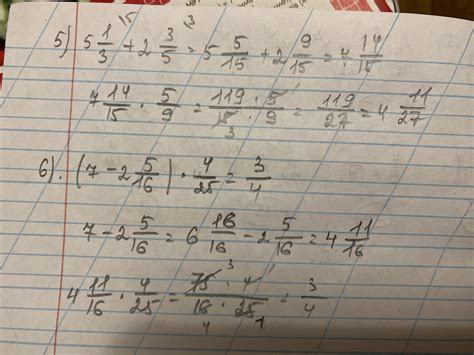 5) 5 1/3 + 2 3/5 = 5 5/15 + 2 9/15 = 4 14/15
7 14/15 · 5/9 = 119/15 · 5/9 = 119/27 = 4 11/27
6). (7 - 2 5/16) · 4/25 = 3/4
7 - 2 5/16 = 6 16/16 - 2 5/16 = 4 11/16
4 11/16 · 4/25 = 75 · 4 / 16 · 25 = 3/4